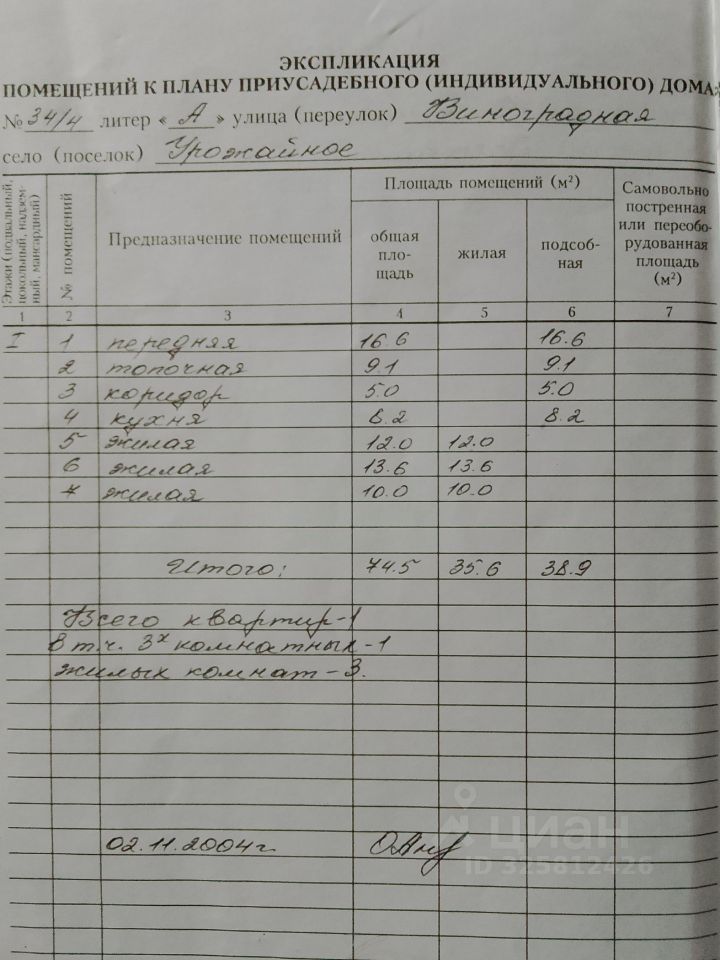 ЭКСПЛИКАЦИЯ
ПОМЕЩЕНИЙ К ПЛАНУ ПРИУСАДЕБНОГО (ИНДИВИДУАЛЬНОГО) ДОМА
№ 34/4 литер « А » улица (переулок) Виноградная
село (поселок) Урожайное
Этажи (подвальный, цокольный, надзем- ный, мансардный)
№ помещений
Предназначение помещений
Площадь помещений (м²)
общая пло- щадь
жилая
подсоб- ная
Самовольно постренная или переобо- рудованная площадь (м²)
1 2 3 4 5 6 7
I 1 передняя 16.6 16.6
2 топочная 9.1 9.1
3 коридор 5.0 5.0
4 кухня 8.2 8.2
5 жилая 12.0 12.0
6 жилая 13.6 13.6
7 жилая 10.0 10.0
Итого: 74.5 35.6 38.9
Всего квартир-1
в т.ч. 3х комнатных-1
жилых комнат-3.
02.11.2004г.
циан
ID 325812426